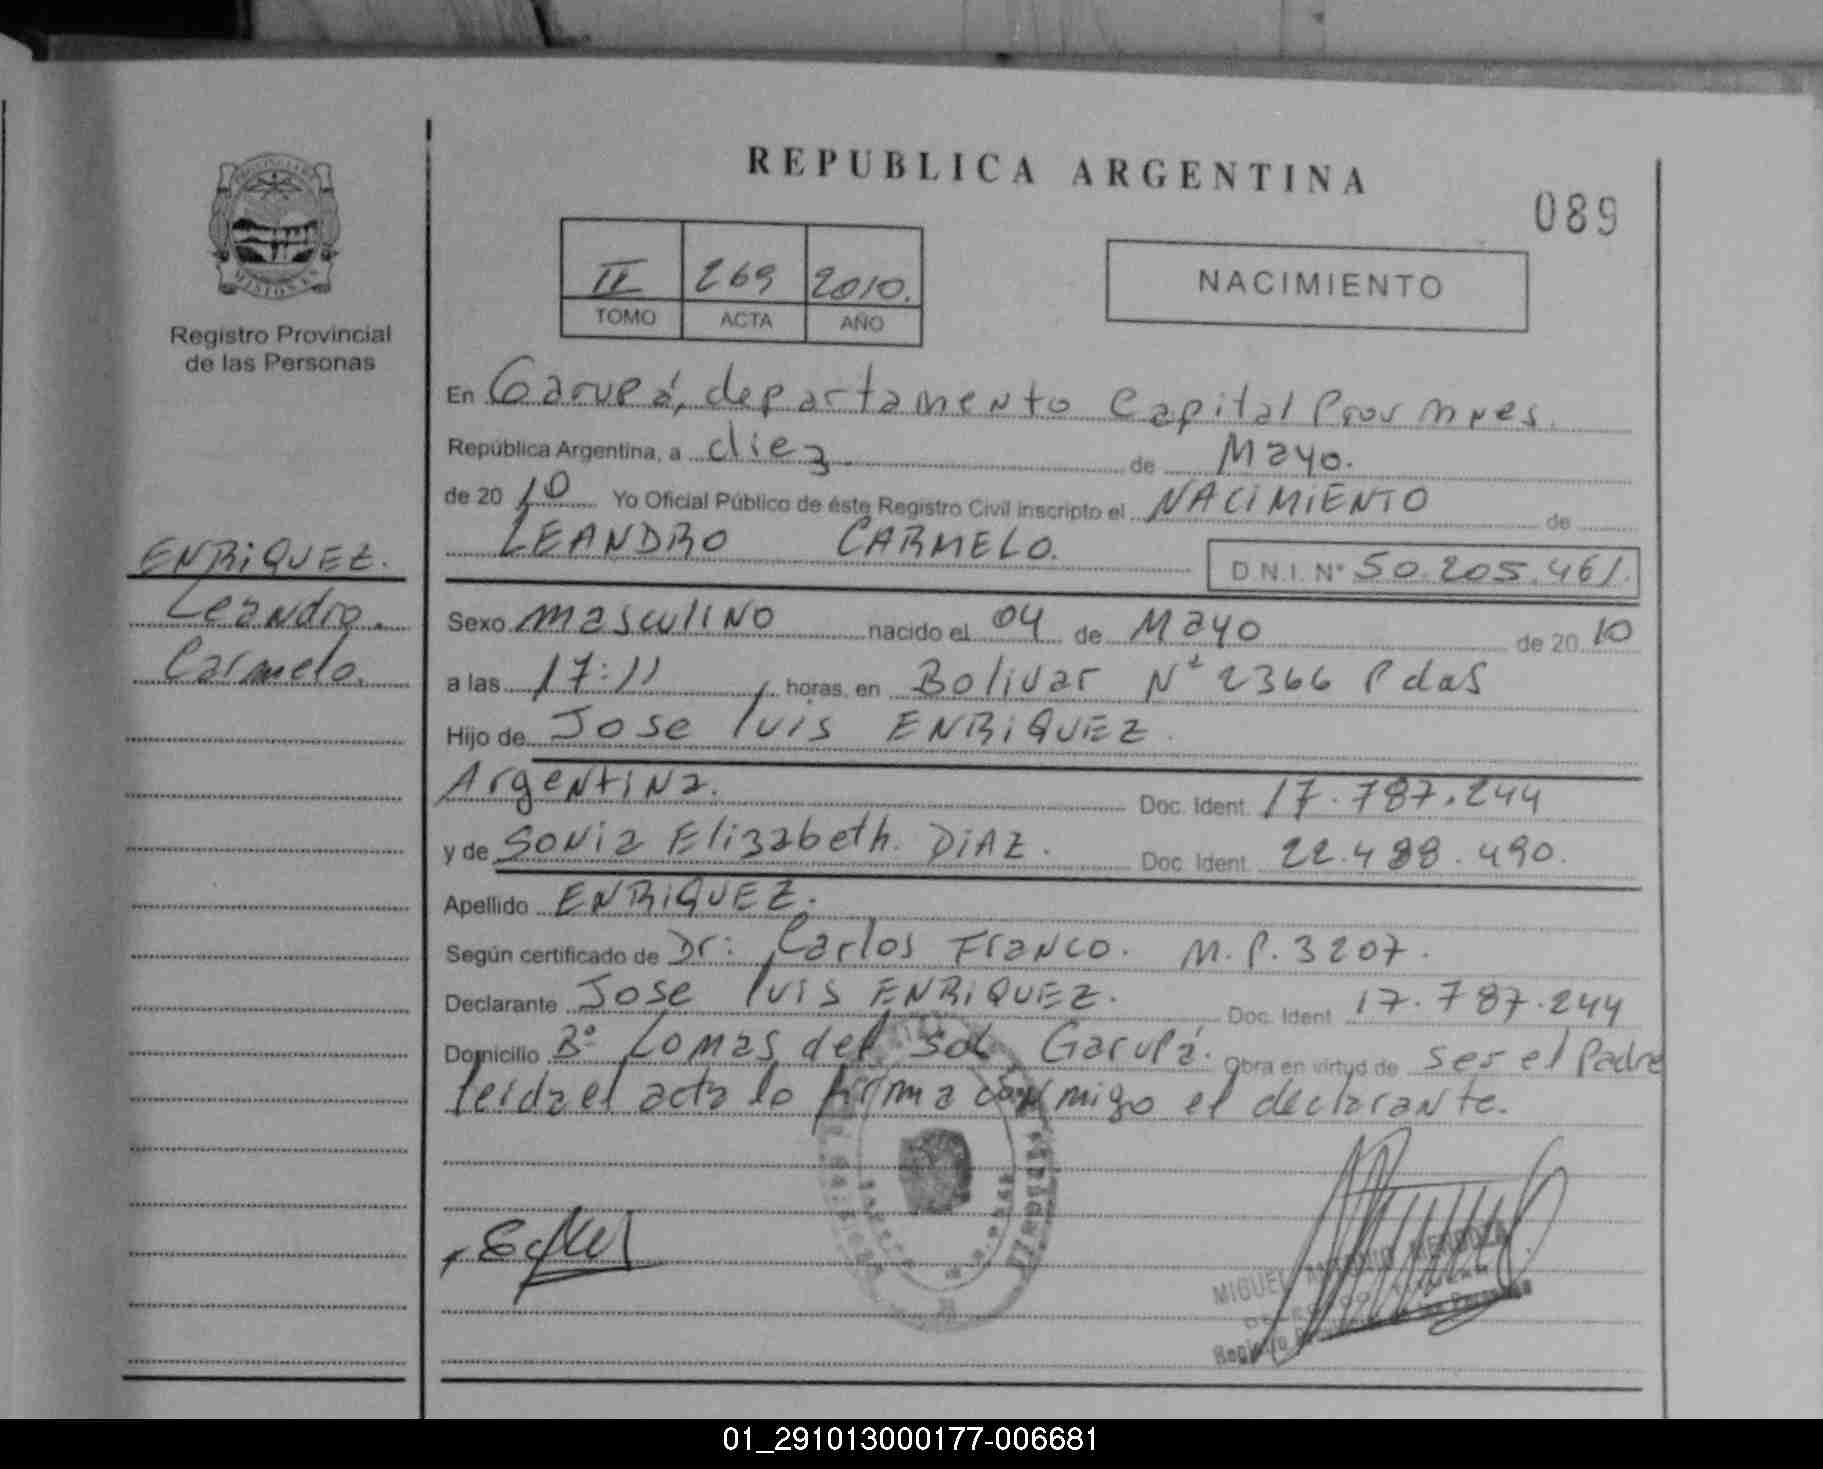 REPUBLICA ARGENTINA
089
PROVINCIA DE
MISIONES
Registro Provincial
de las Personas
II 269 2010.
TOMO ACTA AÑO
NACIMIENTO
En Garupá, departamento Capital Prov Mnes.
República Argentina, a diez de Mayo.
de 20 10 Yo Oficial Público de éste Registro Civil inscripto el NACIMIENTO de
LEANDRO CARMELO.
D.N.I. Nº 50.205.461.
ENRIQUEZ.
Leandro.
Carmelo.
Sexo masculino nacido el 04 de Mayo de 20 10
a las 17:11 horas, en Bolivar Nº 2366 Pdas
Hijo de Jose luis ENRIQUEZ.
Argentina. Doc. Ident. 17.787.244
y de Sonia Elizabeth. DIAZ. Doc. Ident. 22.488.490.
Apellido ENRIQUEZ.
Según certificado de Dr: Carlos Franco. M.P. 3207.
Declarante Jose luis ENRIQUEZ. Doc. Ident. 17.787.244
Domicilio Bº Lomas del Sol Garupá. Obra en virtud de ser el Padre
leida el acta lo firma conmigo el declarante.
MIGUEL ANTONIO MENDOZA
Registro Provincial de las Personas
01_291013000177-006681